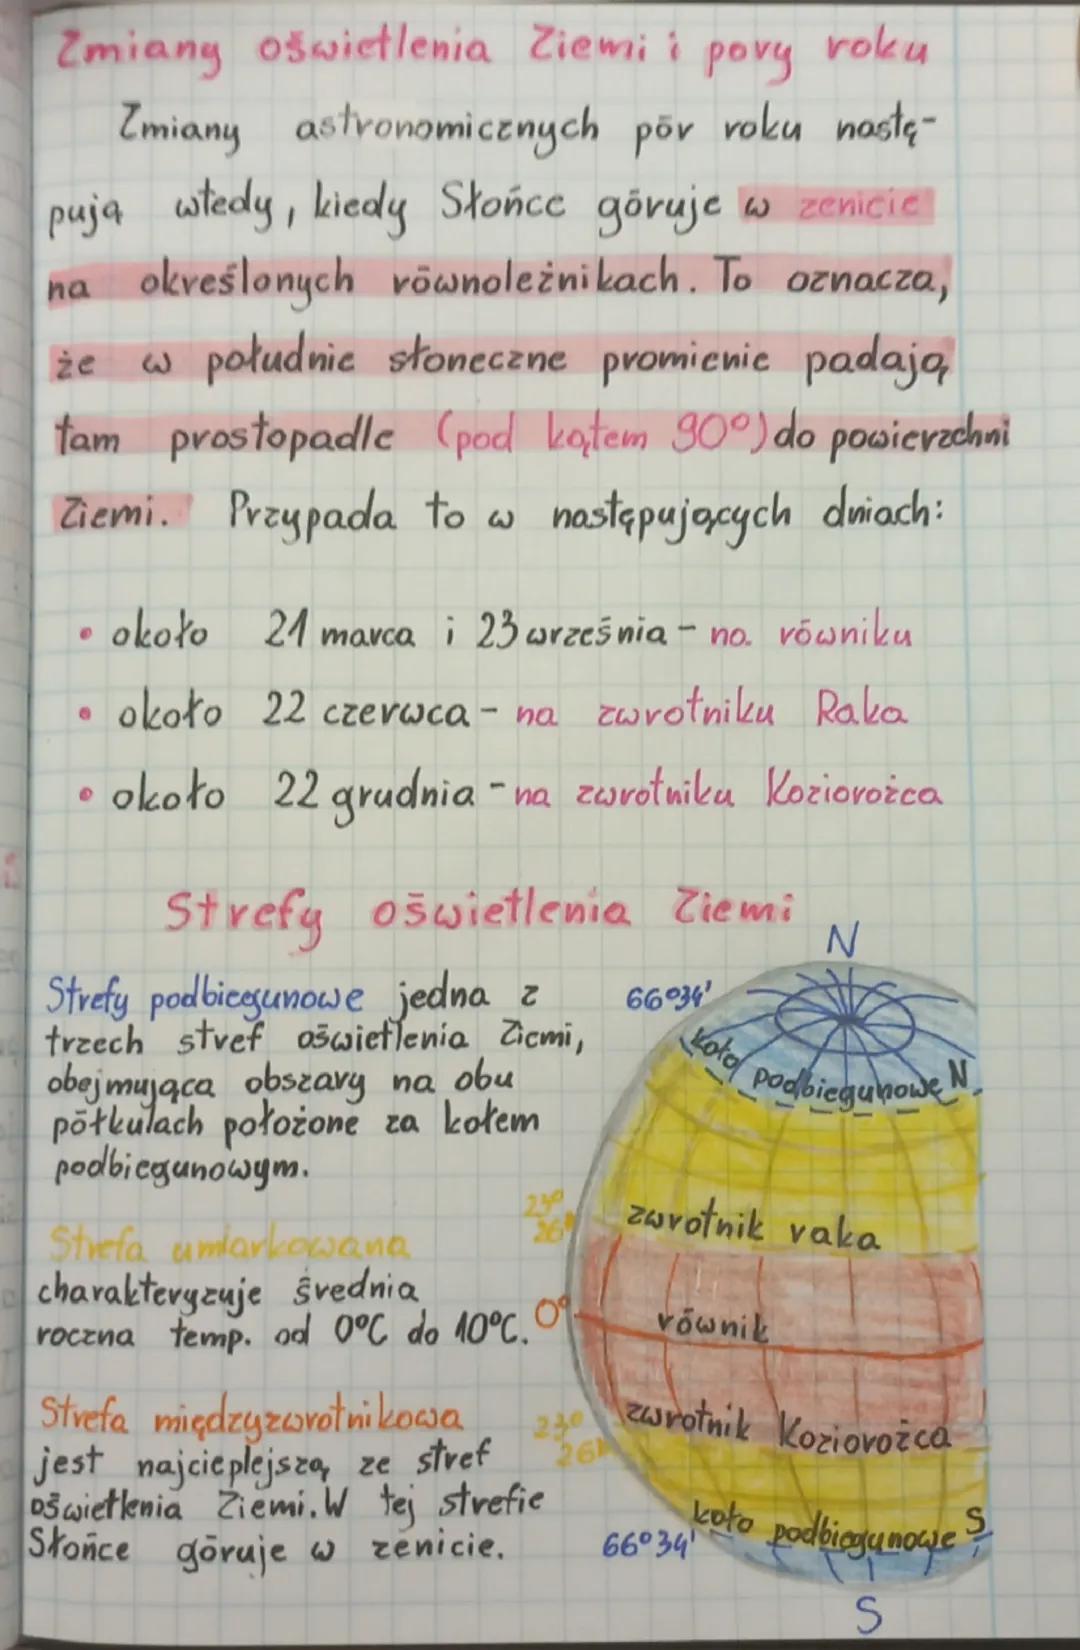 Zmiany oświetlenia Ziemi i pory roku
Zmiany astronomicznych pór roku nastę-
pują wtedy, kiedy Słońce góruje w zenicie
na określonych równoleżnikach. To oznacza,
że w południe słoneczne promienie padają
tam prostopadle (pod kątem 90°) do powierzchni
Ziemi. Przypada to w następujących dniach:
• około 21 marca i 23 września - na równiku
• około 22 czerwca - na zwrotniku Raka
• około 22 grudnia - na zwrotniku Koziorożca
Strefy oświetlenia Ziemi
Strefy podbiegunowe jedna z
trzech stref oświetlenia Ziemi,
obejmująca obszary na obu
półkulach położone za kołem
podbiegunowym.
Strefa umiarkowana
charakteryzuje średnia
roczna temp. od 0°C do 10°C.
Strefa międzyzwrotnikowa
jest najcieplejszą ze stref
oświetlenia Ziemi. W tej strefie
Słońce góruje w zenicie.
N
66°34'
koło podbiegunowe N
23°
26'
zwrotnik raka
0°
równik
zwrotnik Koziorożca
23°
26'
koło podbiegunowe S
66°34'
S